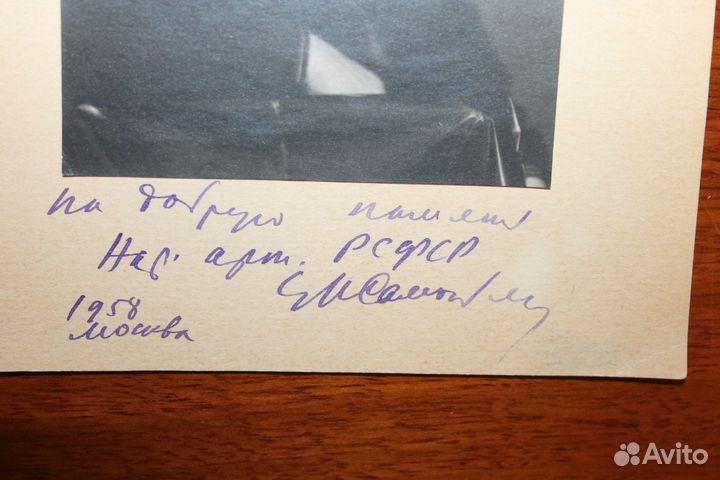 на добрую память
Нар. арт. РСФСР
1958
Москва
Avito